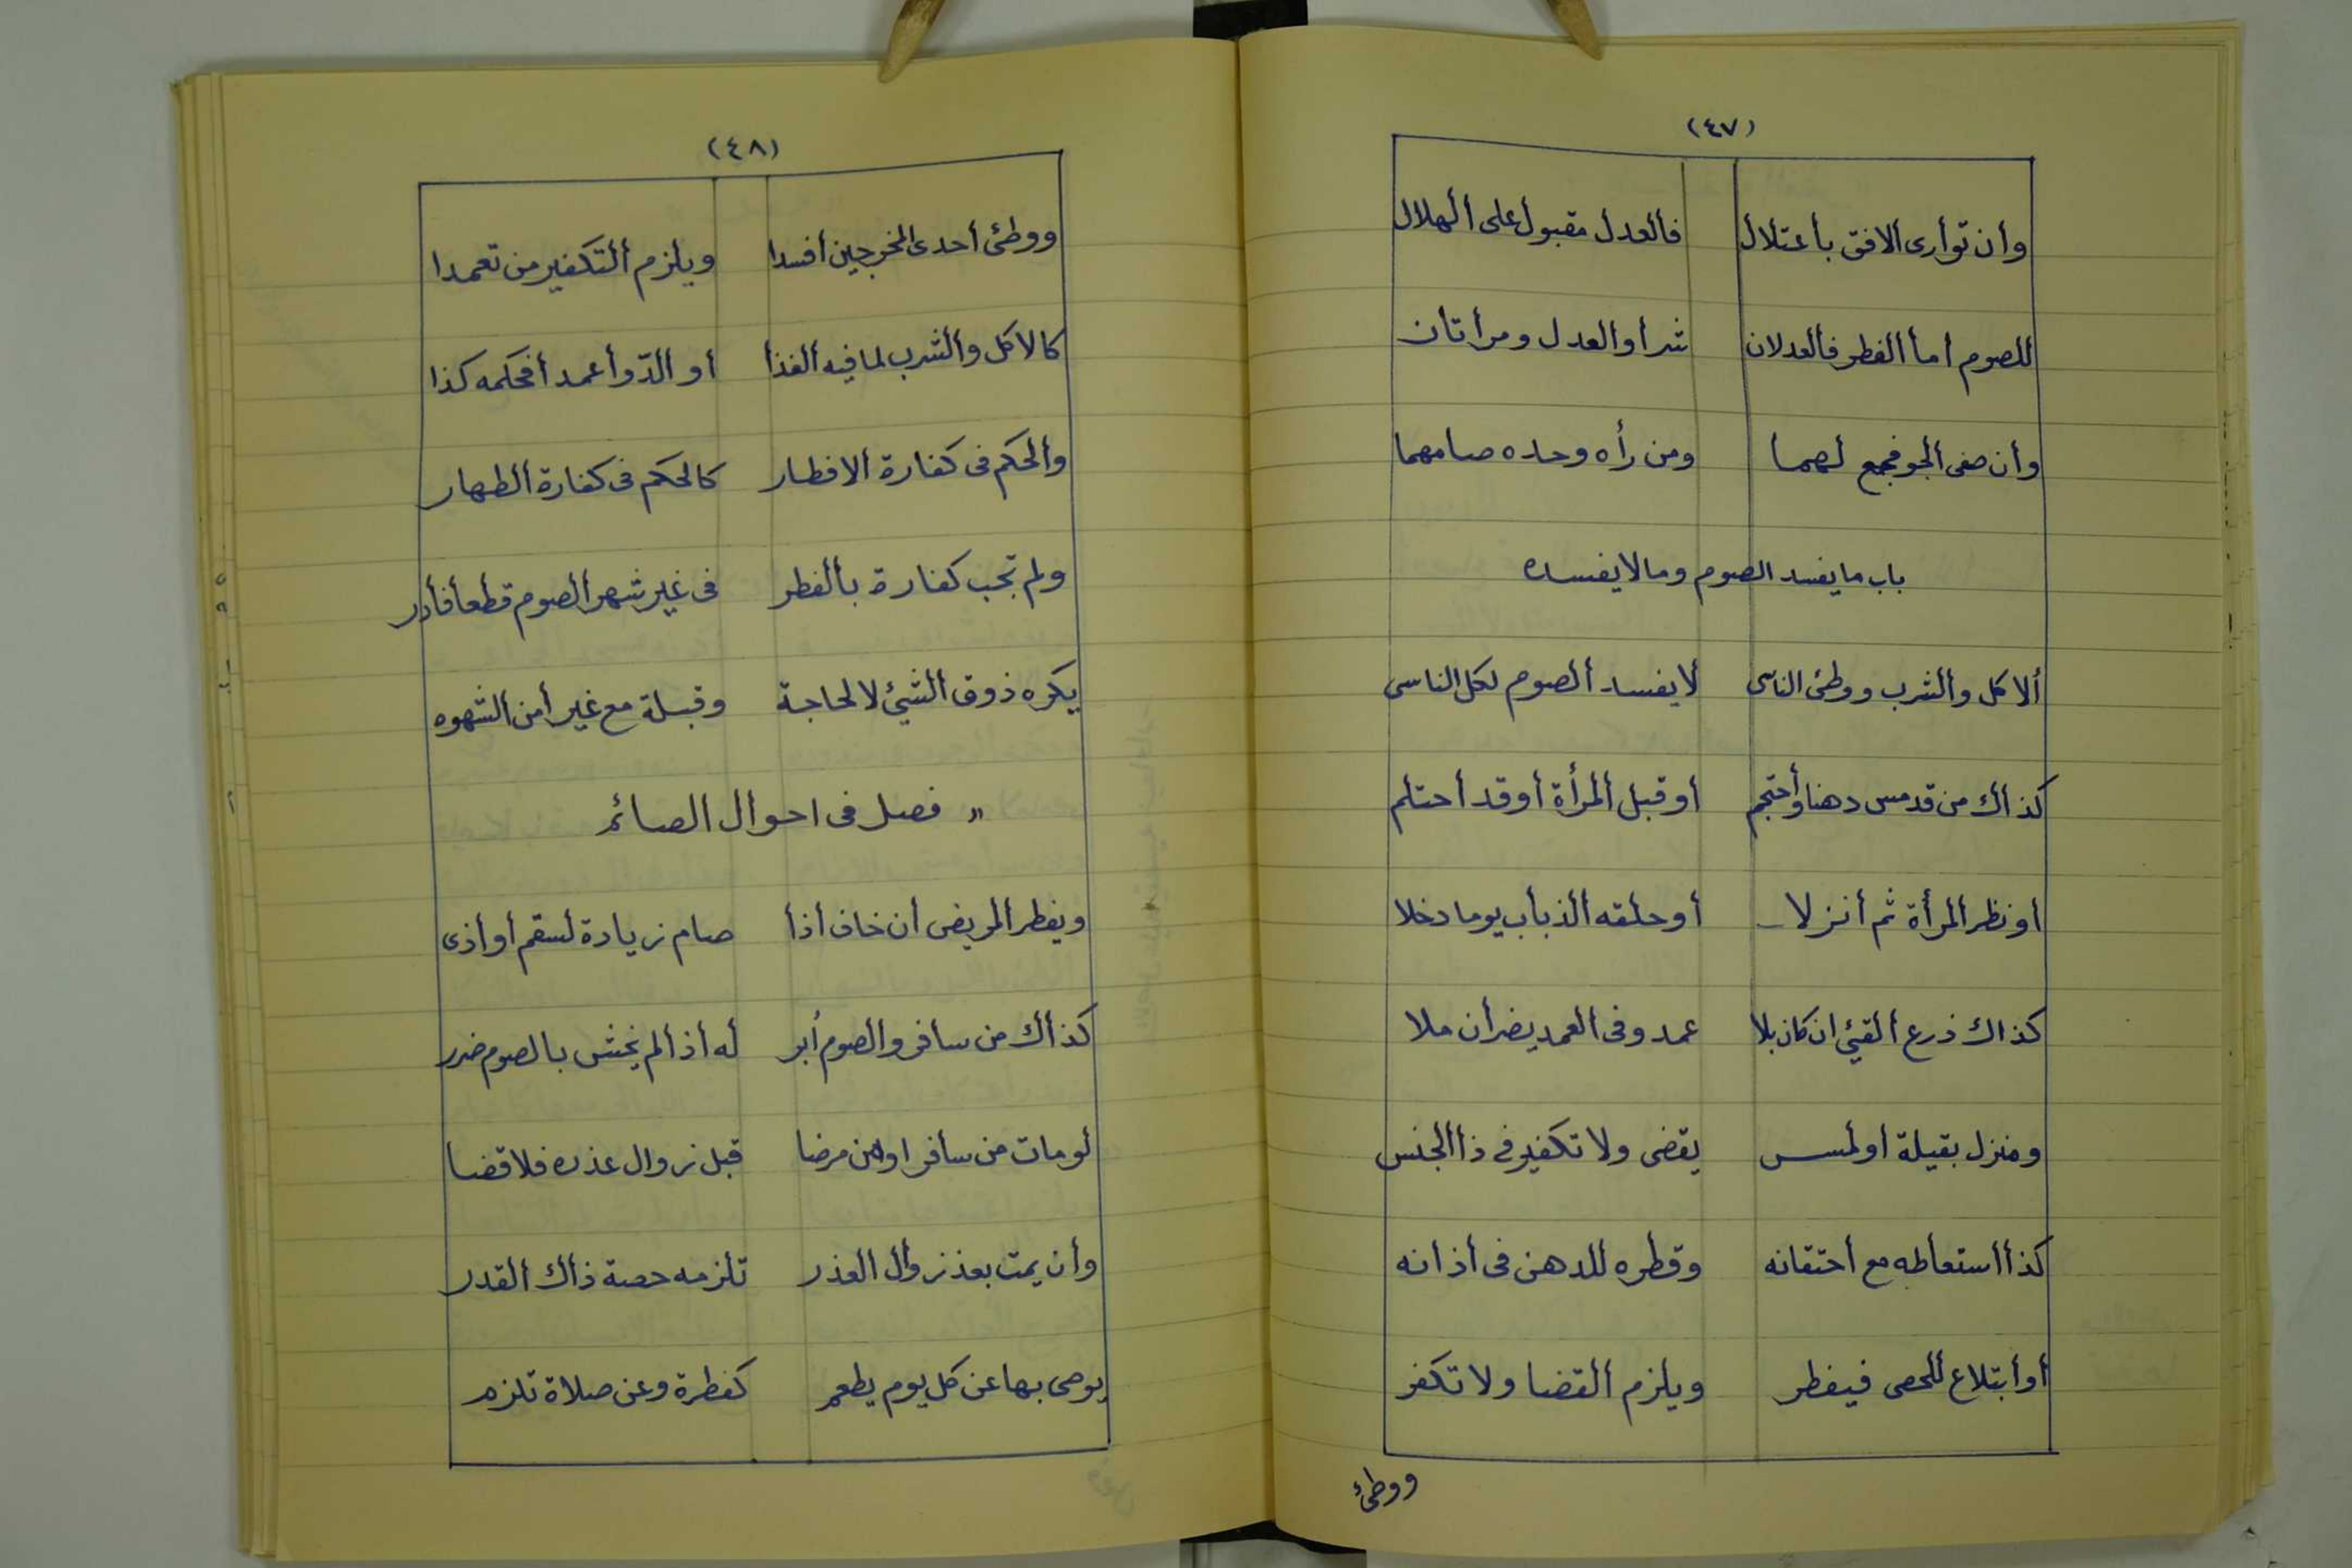 (٤٧)
وان توأرى الافق بأعتلال فألعدل مقبول على ألهلال
للصوم اما ألفطر فألعدلان شرأ وألعدل ومرأتان
وأن صفى ألجو فجمع لهما ومن رأه وحده صامهما
باب ما يفسد الصوم وما لا يفسده
ألاكل وألشرب ووطئ الناسى لا يفسد ألصوم لكل الناسى
كذاك من قد مس دهنا وأحتجم او قبل ألمرأة أوقد أحتلم
او نظر ألمرأة ثم أنزلا أو حلقه ألذباب يوما دخلا
كذاك ذرع ألقيئ ان كان بلا عمد وفى ألعمد يضر أن ملا
ومنزل بقبلة أو لمس يقضى ولا تكفير فى ذا الجنس
كذأ أستعأطه مع أحتقانه وقطره للدهن فى أذانه
أو أبتلاع للحصى فيفطر ويلزم ألقضا ولا تكفر
ووطئ
(٤٨)
ووطئ أحدى المخرجين أفسدا ويلزم ألتكفير من تعمدا
كالاكل وألشرب لما فيه ألغذأ أو ألدّوأ عمدأ فحكمه كذا
وألحكم فى كفارة الافطار كالحكم فى كفارة ألظهار
ولم تجب كفارة بألفطر فى غير شهر ألصوم قطعأ فأدر
يكره ذوق ألشيئ لا لحاجة وقبلة مع غير أمن ألشهوه
« فصل فى احوال الصائم
ويفطر ألمريض أن خاف أذأ صام زيادة لسقم أو أذى
كذأك من سافر وألصوم أبر له أذألم يخش بالصوم ضرر
لو مات من سافر اومن مرضا قبل زوال عذره فلا قضا
وأن يمت بعد زوأل ألعذر تلزمه حصة ذأك ألقدر
يوصى بها عن كل يوم يطعم كفطرة وعن صلاة تلزم